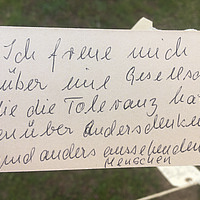 Ich freue mich
über eine Gesellsc
die die Toleranz ha
enüber Andersdenken
und anders aussehenden
MENSCHEN